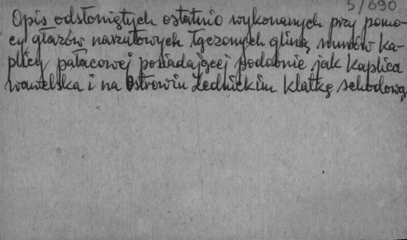 5/690
Opis odsłoniętych ostatnio wykonanych przy pomo-
cy głazów narzutowych łączonych gliną murów ka-
plicy pałacowej posiadającej podobnie jak kaplica
wawelska i na Ostrowiu Lednickim klatkę schodową